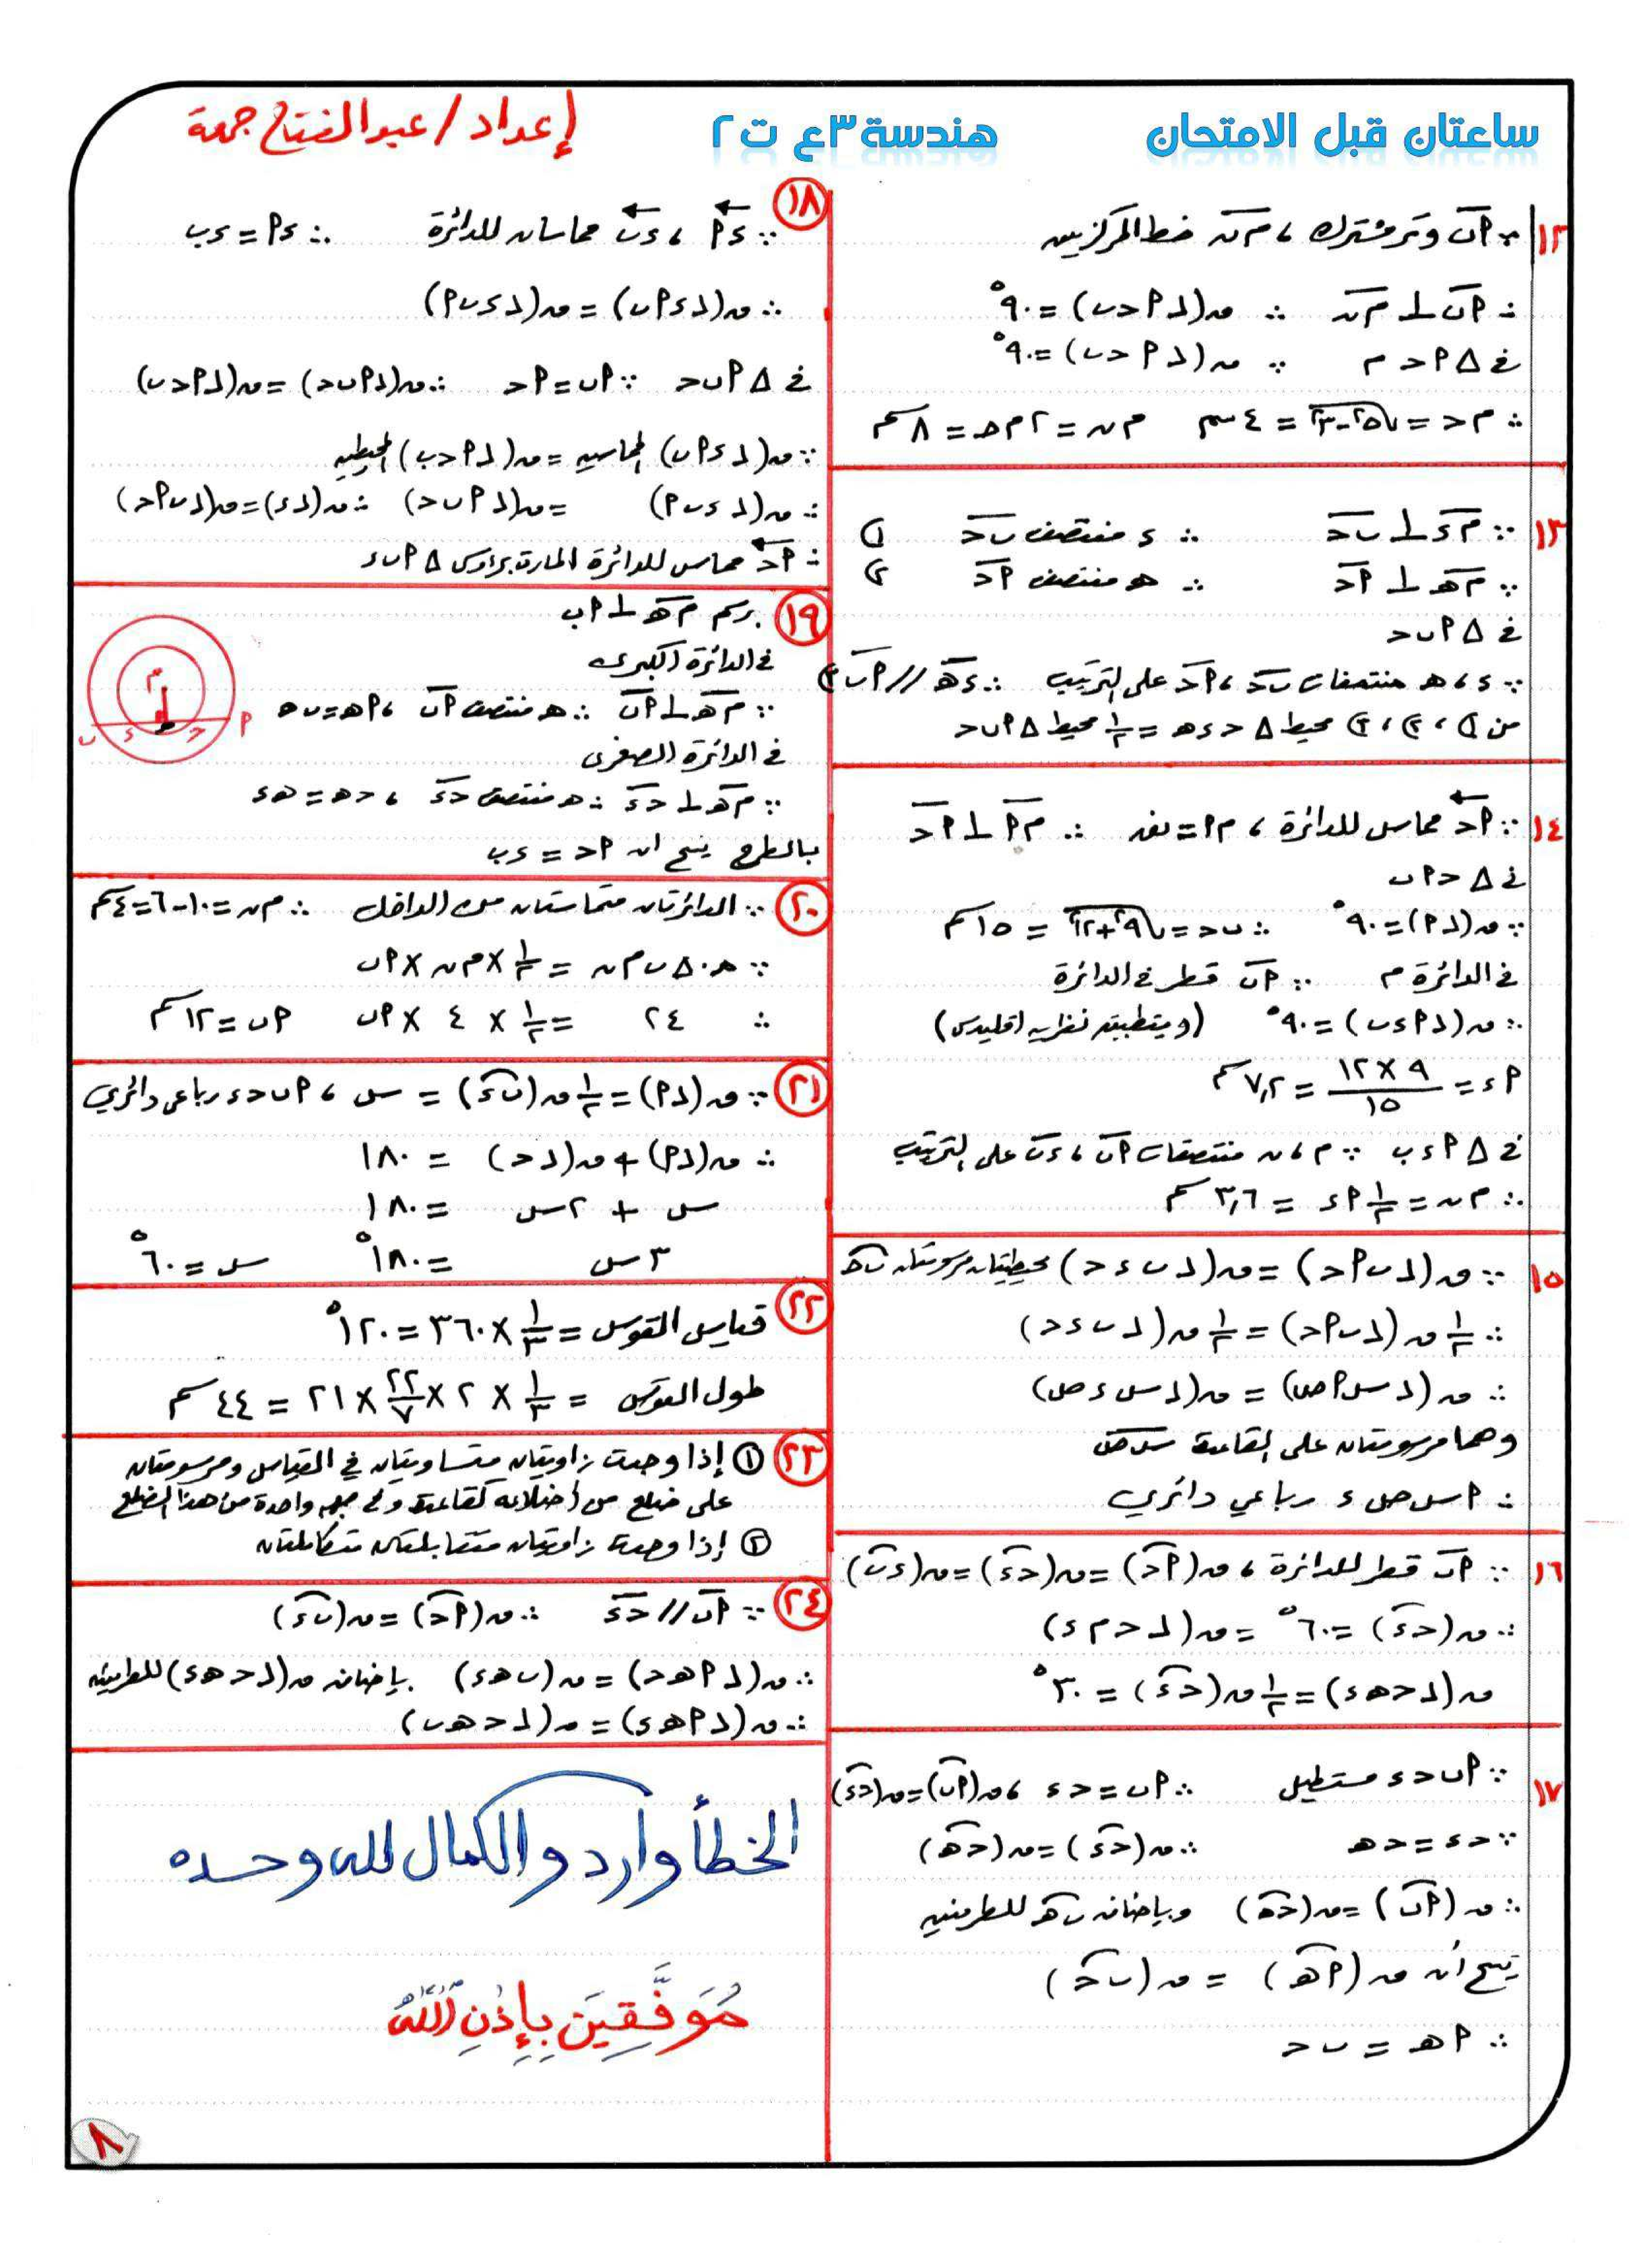 ساعتان قبل الامتحان
هندسة ٣ع ت٢
إعداد / عبد الفتاح جمعة
١٢
∵ أب وتر مشترك ، م ن خط المركزين
∴ أب ⊥ م ن ∴ ق(∠أ ج ب) = ٩٠°
في Δ أ ج م ∵ ق(∠أ ج ب) = ٩٠°
∴ م ج = √(٥² - ٣²) = ٤ سم م ن = ٢ م ج = ٨ سم
١٣
∵ م د ⊥ ب ج ∴ د منتصف ب ج ①
∵ م ه ⊥ أ ج ∴ ه منتصف أ ج ②
في Δ أ ب ج
∵ د ، ه منتصفات ب ج ، أ ج على الترتيب ∴ د ه // أ ب ③
من ① ، ② ، ③ محيط Δ ج د ه = ١/٢ محيط Δ أ ب ج
١٤
∵ أ ج مماس للدائرة ، م أ = نق ∴ م أ ⊥ أ ج
في Δ ج أ ب
∵ ق(∠أ) = ٩٠° ∴ ب ج = √(٩² + ١٢²) = ١٥ سم
في الدائرة م ∵ أ ب قطر في الدائرة
∴ ق(∠أ د ب) = ٩٠° (وبتطبيق نظرية اقليدس)
أ د = ٩ × ١٢ / ١٥ = ٧,٢ سم
في Δ أ د ب ∵ م ، ن منتصفات أ ب ، د ب على الترتيب
∴ م ن = ١/٢ أ د = ٣,٦ سم
١٥
∵ ق(∠ب أ ج) = ق(∠ب د ج) محيطيتان مرسومتان ب ج
∴ ١/٢ ق(∠ب أ ج) = ١/٢ ق(∠ب د ج)
∴ ق(∠س أ ص) = ق(∠س د ص)
وهما مرسومتان على القاعدة س ص
∴ أ س ص د رباعي دائري
١٦
∵ أ ب قطر للدائرة ، ق(أ ج) = ق(ج د) = ق(د ب)
∴ ق(ج د) = ٦٠° = ق(∠ج م د)
ق(∠ج ه د) = ١/٢ ق(ج د) = ٣٠°
١٧
∵ أ ب ج د مستطيل ∴ أ ب = ج د ، ق(أ ب) = ق(ج د)
∵ ج د = ج ه ∴ ق(ج د) = ق(ج ه)
∴ ق(أ ب) = ق(ج ه) وبإضافة ب ه للطرفين
ينتج أن ق(أ ه) = ق(ب ج)
∴ أ ه = ب ج
١٨
∵ د أ ، د ب مماسان للدائرة ∴ د أ = د ب
∴ ق(∠د أ ب) = ق(∠د ب أ)
في Δ أ ب ج ∵ أ ب = أ ج ∴ ق(∠أ ب ج) = ق(∠أ ج ب)
∵ ق(∠د أ ب) المماسية = ق(∠أ ج ب) المحيطية
∴ ق(∠د ب أ) = ق(∠أ ب ج) ∴ ق(∠د) = ق(∠ب أ ج)
∴ أ ج مماس للدائرة المارة برؤوس Δ أ ب د
١٩
برسم م ه ⊥ أ ب
في الدائرة الكبرى
∵ م ه ⊥ أ ب ∴ ه منتصف أ ب ، أ ه = ب ه
في الدائرة الصغرى
∵ م ه ⊥ ج د ∴ ه منتصف ج د ، ج ه = ه د
بالطرح ينتج ان أ ج = د ب
م
أ ج ه د ب
٢٠
∵ الدائرتان متماستان من الداخل ∴ م ن = ١٠ - ٦ = ٤ سم
∵ م. Δ ب م ن = ١/٢ × م ن × أ ب
∴ ٢٤ = ١/٢ × ٤ × أ ب أ ب = ١٢ سم
٢١
∵ ق(∠أ) = ١/٢ ق(ب د) = س ، أ ب ج د رباعي دائري
∴ ق(∠أ) + ق(∠ج) = ١٨٠
س + ٢س = ١٨٠
٣س = ١٨٠° س = ٦٠°
٢٢
قياس القوس = ١/٣ × ٣٦٠ = ١٢٠°
طول القوس = ١/٣ × ٢ × ٢٢/٧ × ٢١ = ٤٤ سم
٢٣
① إذا وجدت زاويتان متساويتان في القياس ومرسومتان
على ضلع من أضلاعه كقاعدة وفي جهة واحدة من هذا الضلع
② إذا وجدت زاويتان متقابلتان متكاملتان
٢٤
∵ أ ب // ج د ∴ ق(أ ج) = ق(ب د)
∴ ق(∠أ ه ج) = ق(ب ه د) بإضافة ق(∠ج ه د) للطرفين
∴ ق(∠أ ه د) = ق(∠ج ه ب)
الخطأ وارد والكمال لله وحده
مُوَفَّقِينَ بِإِذْنِ اللّٰه
٨